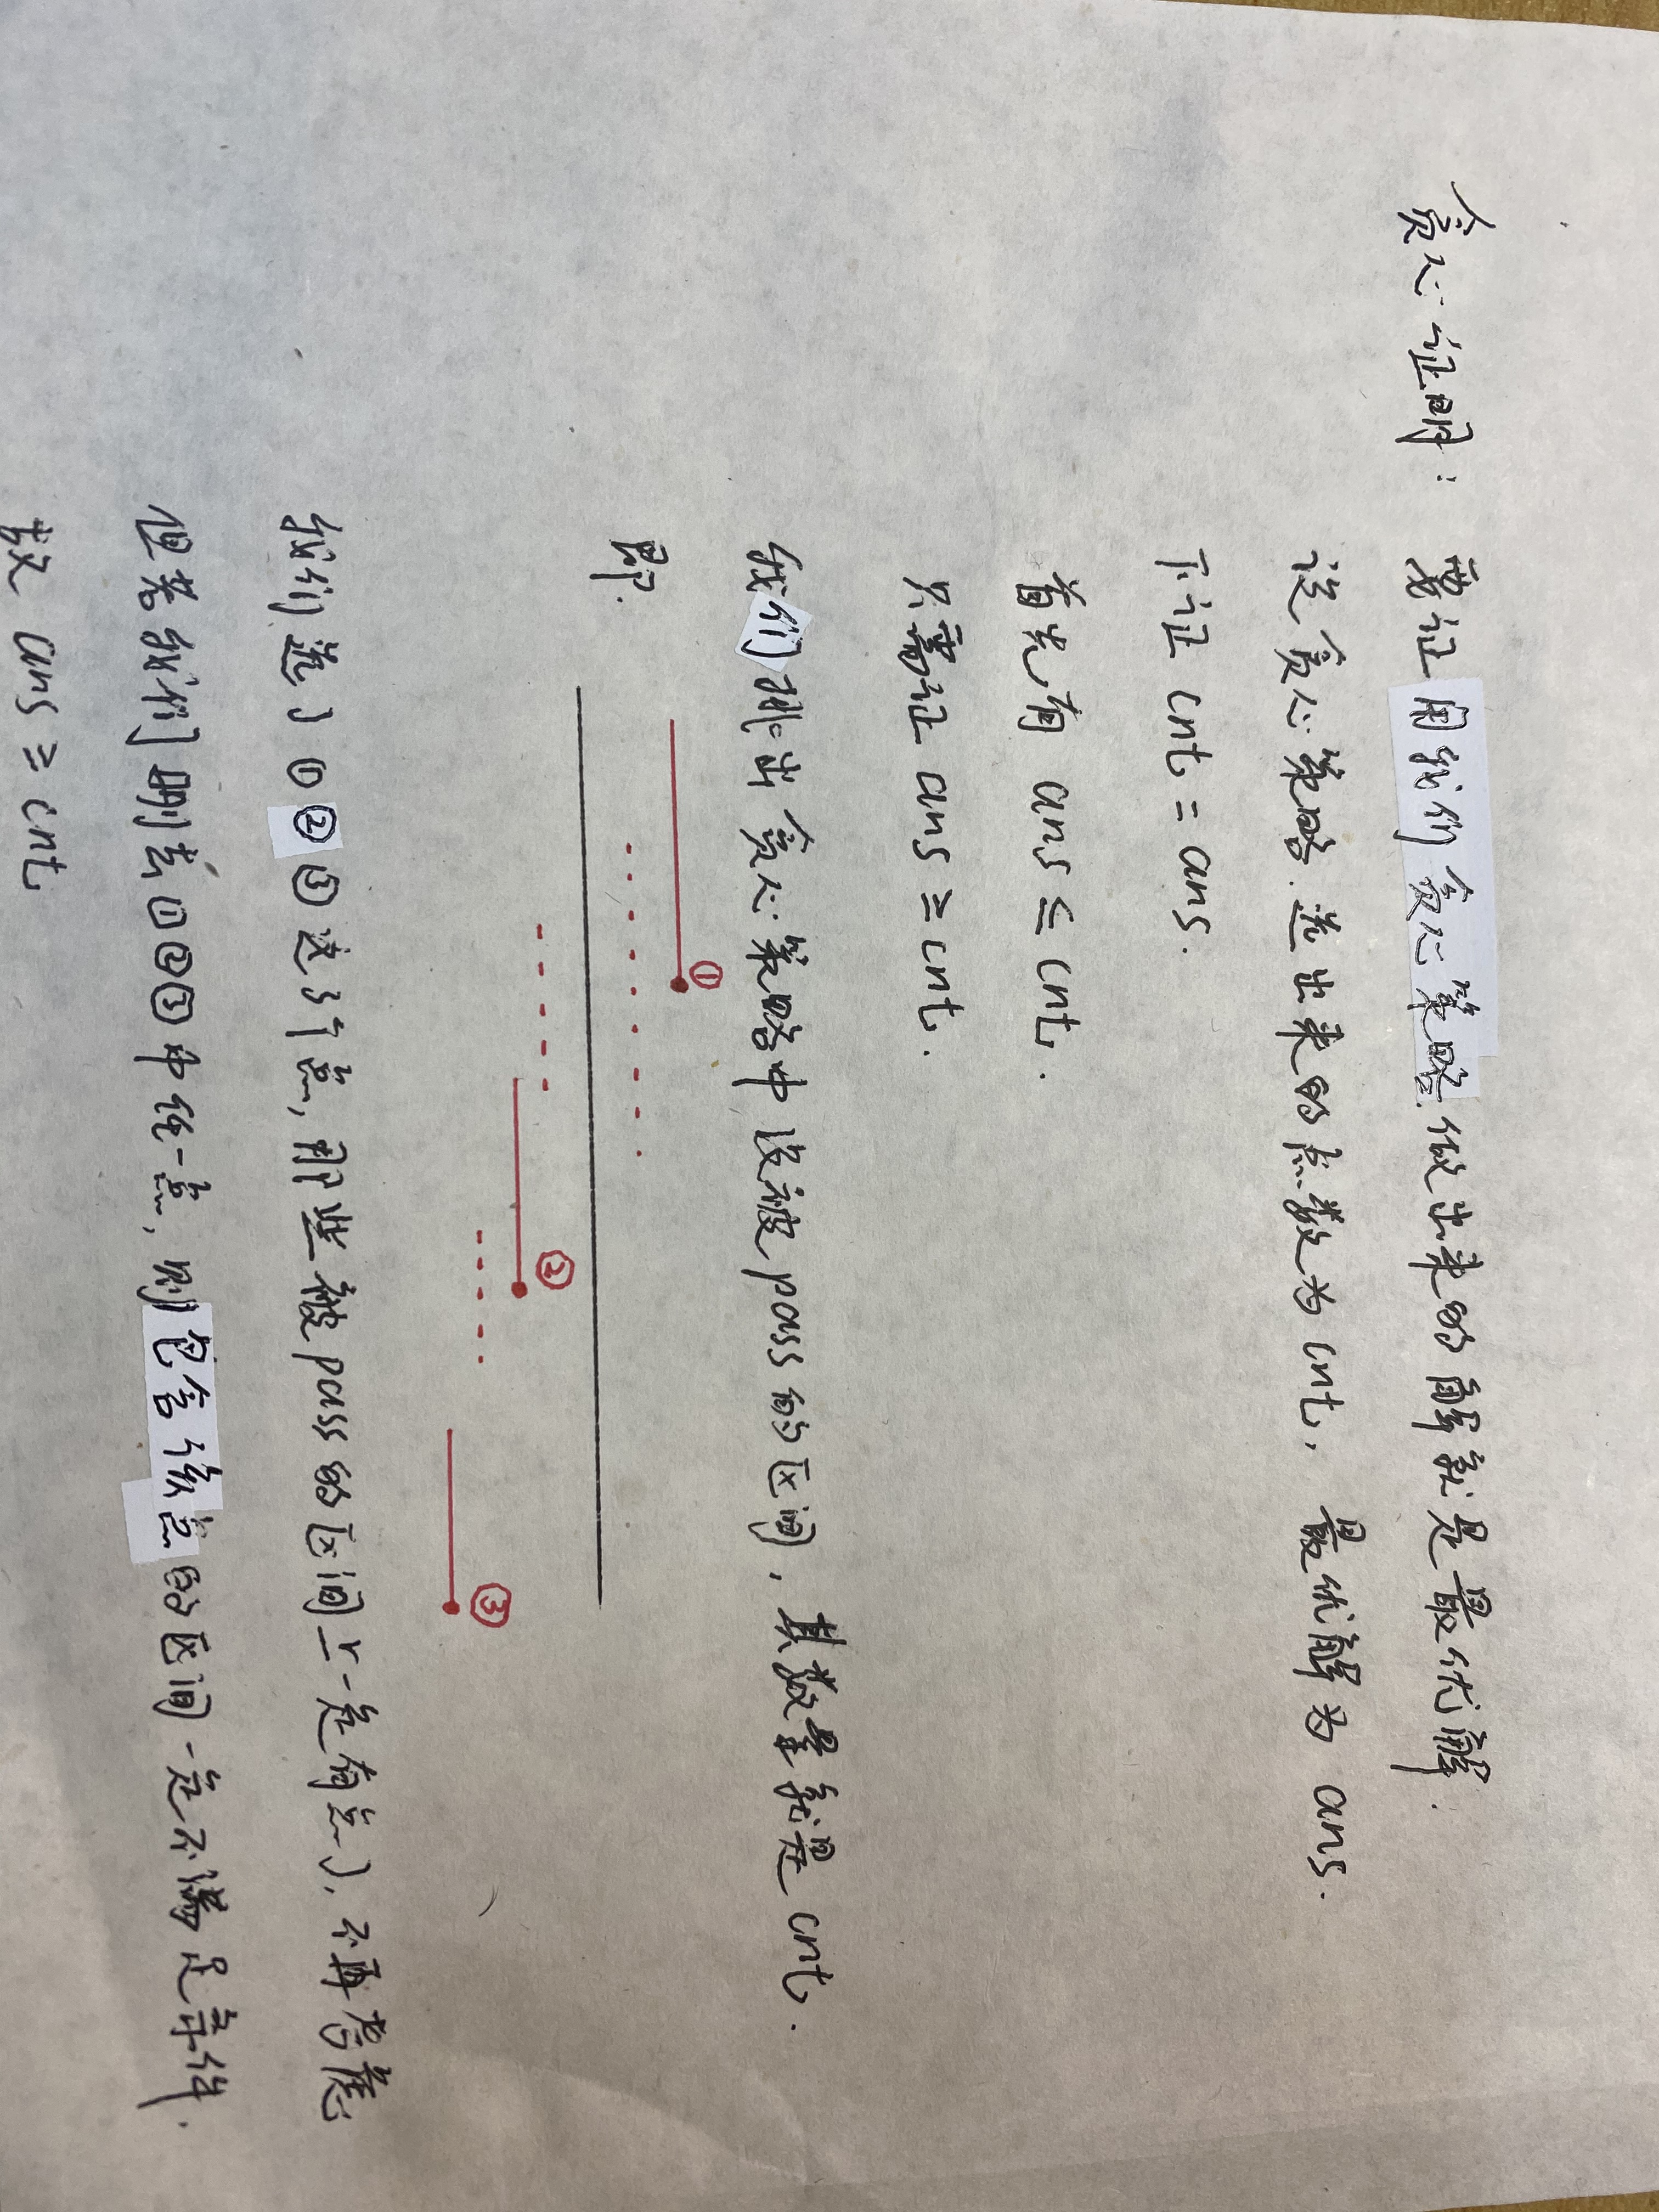 贪心证明: 要证用我们贪心策略做出来的解就是最优解.
设贪心策略选出来的点数为 cnt, 最优解为 ans.
下证 cnt = ans.
首先有 ans ≤ cnt.
只需证 ans ≥ cnt.
我们挑出贪心策略中没被pass的区间, 其数量就是 cnt.
①
即.
②
③
我们选了①②③这3个点, 那些被pass的区间上一定有点了, 不再考虑
但若我们删去①②③中任一点, 则包含该点的区间一定不满足条件.
故 ans ≥ cnt